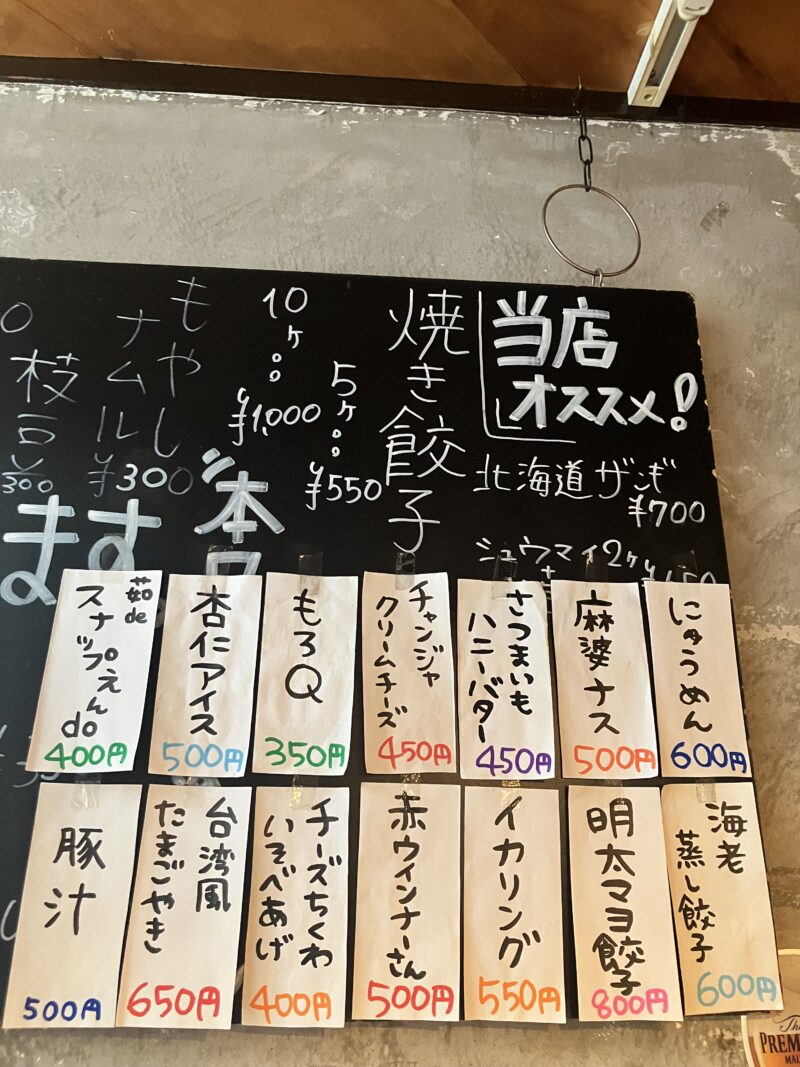 当店
オススメ!
北海道ザンギ
¥700
シュウマイ2ヶ
焼き餃子
5ヶ。。
¥550
10ヶ。。
¥1,000
もやし
ナムル
¥300
枝豆
¥300
ます。
にゅうめん
600円
麻婆ナス
500円
さつまいも
ハニーバター
450円
チャンジャ
クリームチーズ
450円
もろQ
350円
杏仁アイス
500円
茹de
スナップえん
do
400円
海老
蒸し餃子
600円
明太マヨ餃子
800円
イカリング
550円
赤ウインナーさん
500円
チーズちくわ
いそべあげ
400円
台湾風
たまごやき
650円
豚汁
500円
The
PREM
MAL